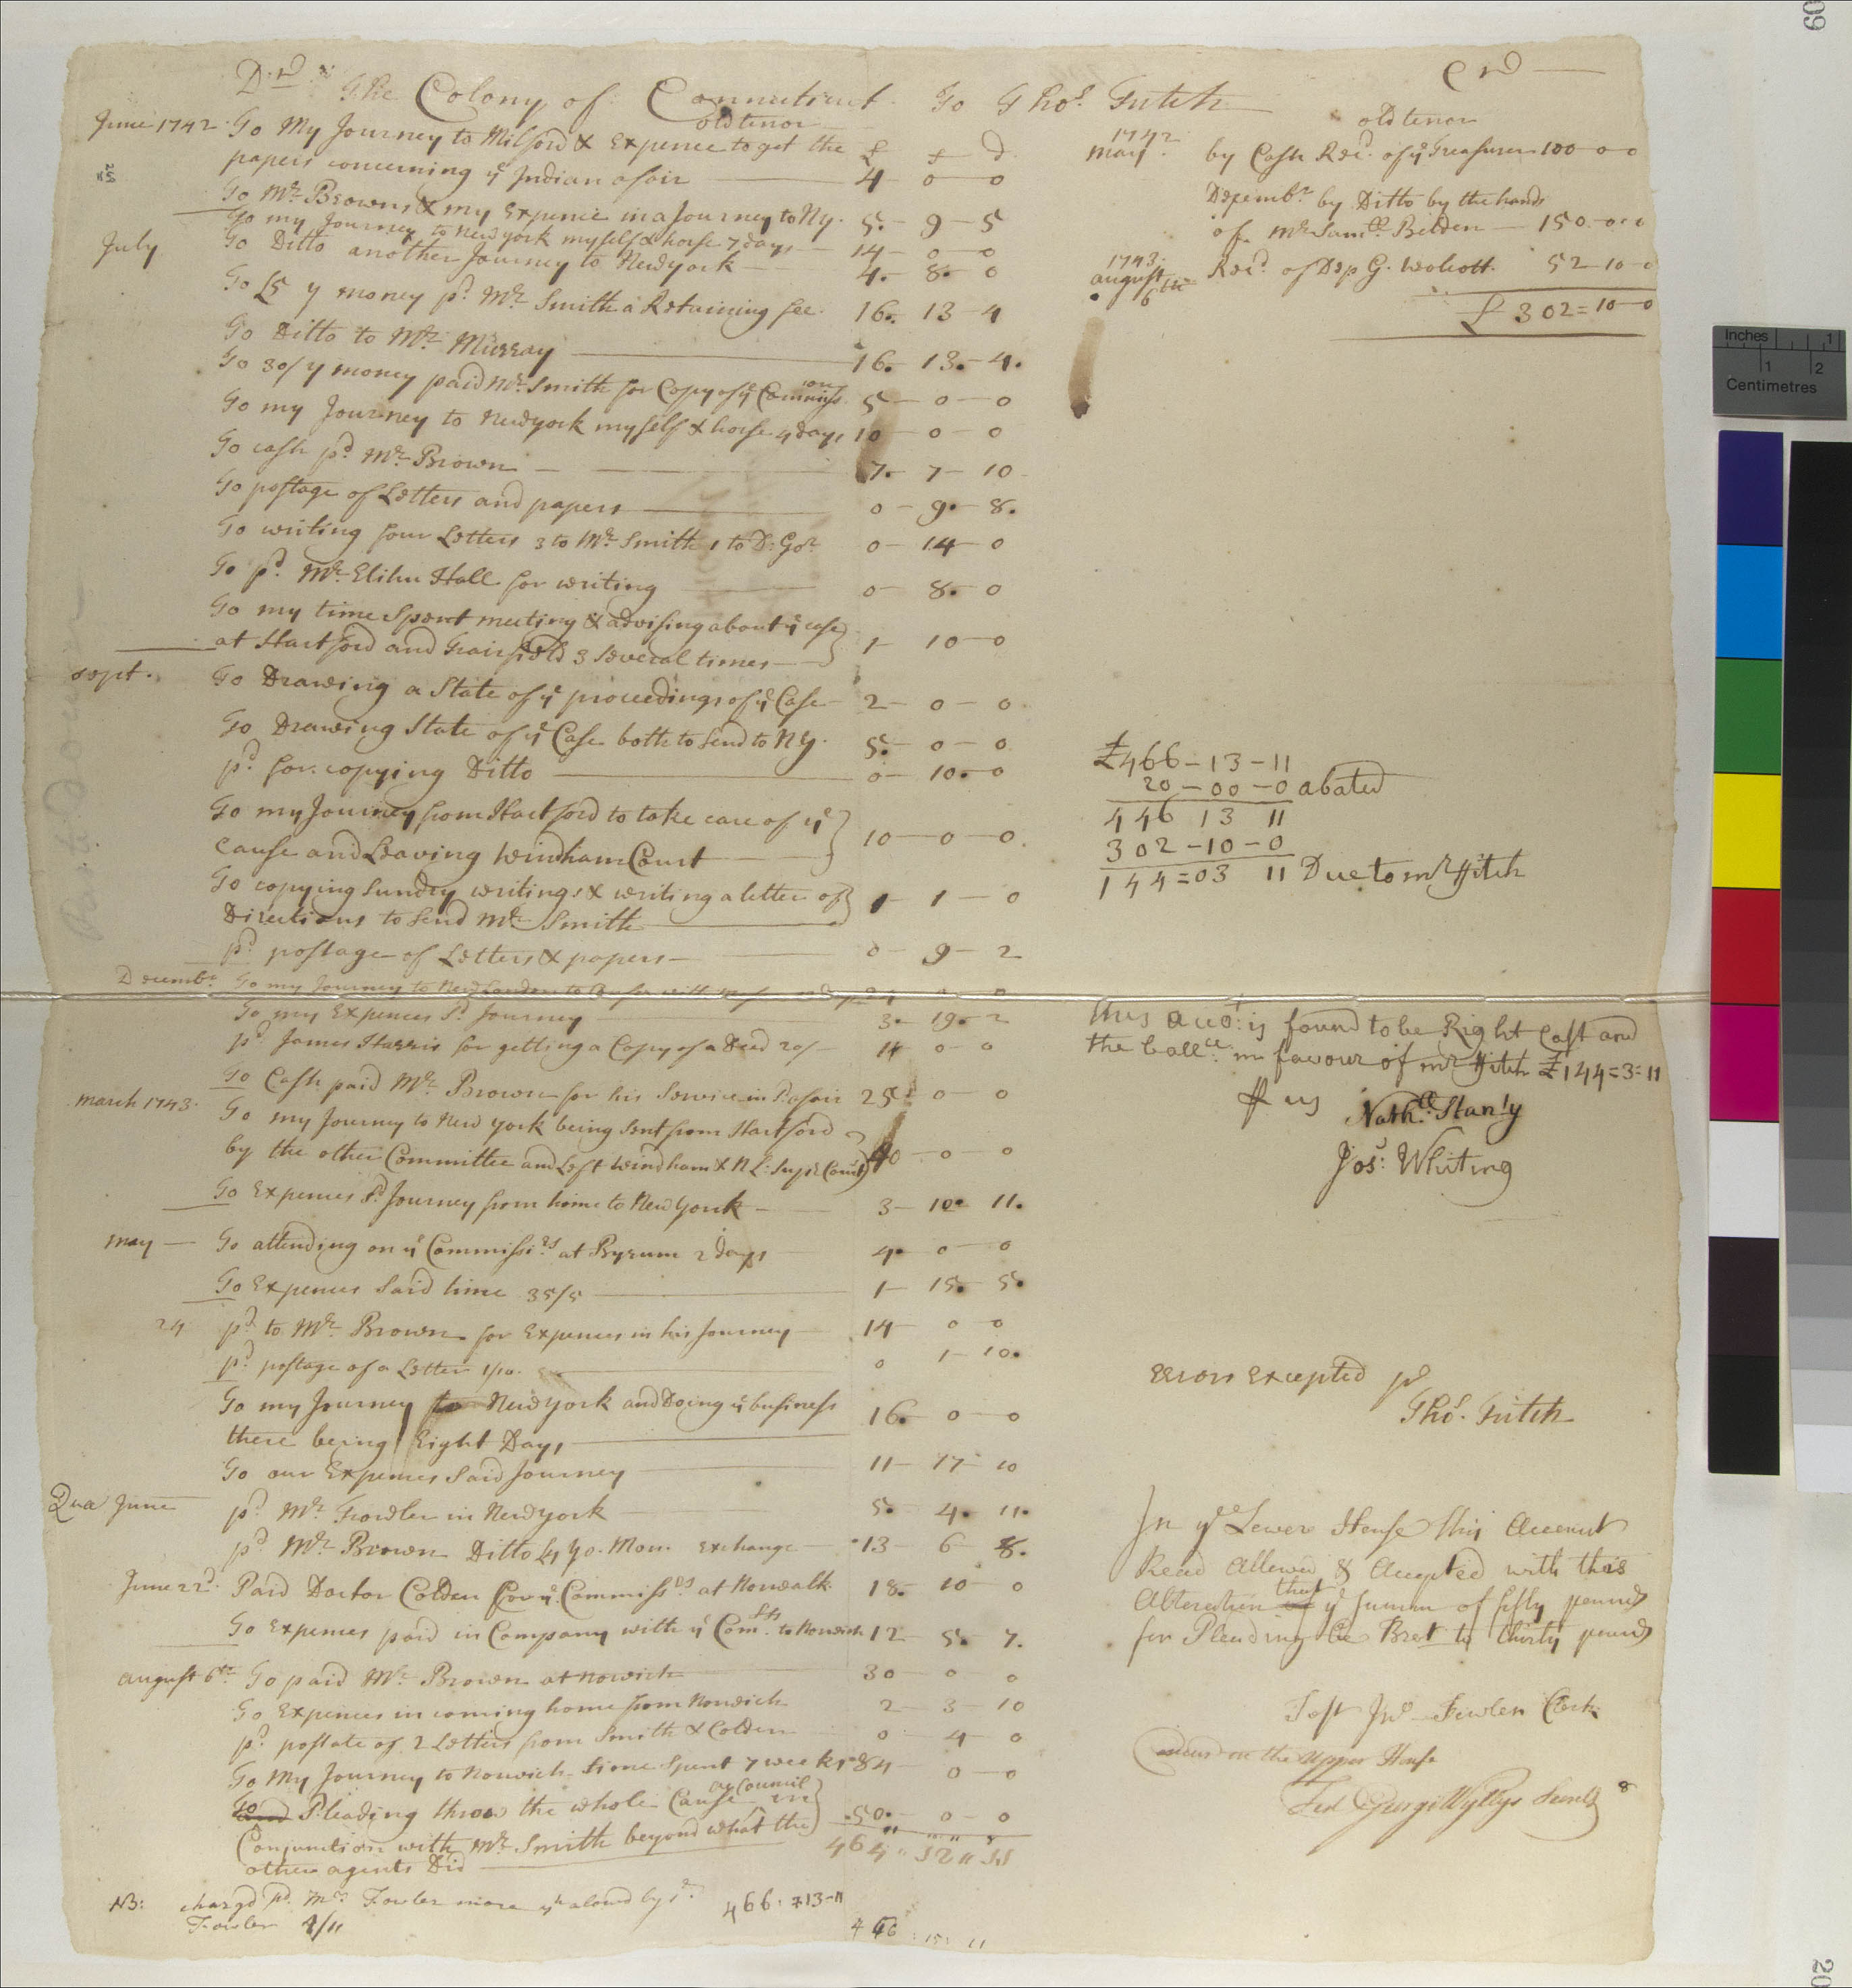 Dr The Colony of Connecticut To Thos. Fitch Cr
old tenor
£ s d
June 1742 To My Journey to Milford & Expence to get the
papers concerning ye Indian afair 4 0 0
To Mr. Browns & my Expence in a Journey to NY. 5 - 9 - 5
To my Journey to New york myself & horse 7 days 14 0 0
July To Ditto another Journey to New york 4 - 8 - 0
To £5 y money pd. Mr. Smith a Retaining fee 16 - 13 - 4
To Ditto to Mr. Murray 16 - 13 - 4
To 30/ y money paid Mr. Smith for Copy of ye Commissions 5 - 0 - 0
To my Journey to New york myself & horse 4 days 10 0 0
To cash pd. Mr. Brown 7 - 7 - 10
To postage of Letters and papers 0 - 9 - 8
To writing four Letters 3 to Mr. Smith 1 to D: Gor. 0 - 14 - 0
To pd. Mr. Elihu Hall for writing 0 - 8 - 0
To my time Spent meeting & advising about ye case
at Hartford and Fairfield 3 several times 1 10 - 0
sept. To Drawing a State of ye proceedings of ye Case 2 - 0 - 0
To Drawing State of ye Case both to Send to NY. 5 - 0 - 0
pd. for copying Ditto 0 - 10 - 0
To my Journey from Hartford to take care of ye
Cause and Leaving Windham Court 10 - 0 - 0
To copying sundry writings & writing a letter of
Directions to Send Mr. Smith 1 - 1 - 0
pd. postage of Letters & papers 0 - 9 - 2
Decembr. To my Journey to New London to
To my Expences sd. Journey 3 - 19 - 2
pd. James Harris for getting a Copy of a Deed 20/ 0 - 0
To Cash paid Mr. Brown for his Service in sd. afair 25 - 0 - 0
march 1743. To my Journey to New york being Sent from Hartford
by the other Committee and Left Windham & N L: Supr. Court 0 - 0
To Expences sd. Journey from home to New York 3 - 10 - 11
may To attending on ye Commissirs at Byrum 2 days 4 0 - 0
To Expences Said time 35/5 1 - 15 - 5
24 pd. to Mr. Brown for Expences in his Journey 14 0 0
pd. postage of a Letter 1/10. 0 1 - 10
To my Journey to New york and Doing ye business
there being Eight Days 16 0 - 0
To our Expences Said Journey 11 - 17 - 10
June pd. Mr. Fowler in New york 5 - 4 - 11
pd. Mr. Brown Ditto £4 Yo. Mon. exchange 13 - 6 - 8
June 22d. Paid Doctor Colden for ye Commissrs at Norwalk 18 - 10 - 0
To Expences paid in Company with ye Comsrs to Norwich 12 - 5 - 7
august 6th To paid Mr. Brown at Norwich 30 0 0
To Expences in coming home from Norwich 2 - 3 - 10
pd. postate of 2 Letters from Smith & Colden 0 - 4 - 0
To My Journey to Norwich time Spent 7 weeks 84 0 - 0
To Pleading throw the whole Cause as Council in
Conjunction with Mr. Smith beyond what the 50 - 0 - 0
other agents Did 464 " 12 " 11
NB: chargd pd. Mr. Fowler more yn alowd by sd. 466 - 13 - 11
Fowler 466 : 15 : 11
old tenor
1742
may by Cash Recd. of ye Treasurer 100 - 0 - 0
Decembr. by Ditto by the hands
of Mr Samll. Belden 150 - 0 - 0
1743
august 6th Recd. of Dep G. Wolcott 52 - 10 - 0
£ 302 = 10 - 0
£466 - 13 - 11
20 - 00 - 0 abated
446 13 11
302 - 10 - 0
144 = 03 11 Due to mr Fitch
This accot: is found to be Right Cast and
the ballce. in favour of mr Fitch £144 = 3 = 11
us Nathll. Stanly
Jos: Whiting
Errors Excepted pr
Thos. Fitch
In ye Lower House this Account
Read Allowed & Accepted with this
Alteration that ye summ of fifty pounds
for Pleading be Brot to thirty pounds
Test Jno Fowler Clerk
Concurd in the Upper House
Test George Wyllys Secrety